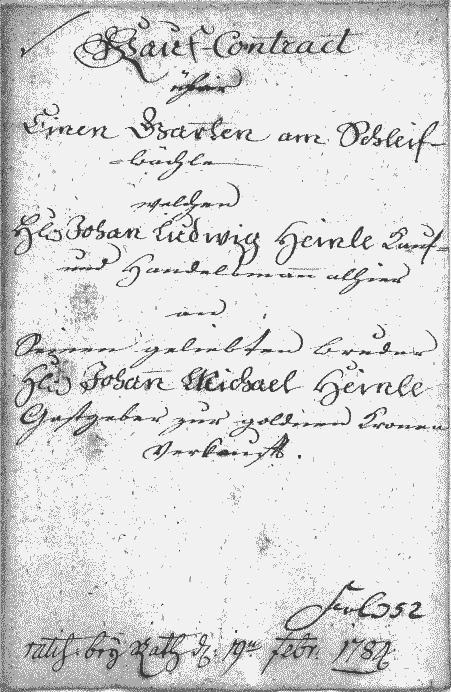 Kauf-Contract
über
Einen Garten am Schleif-
bächle
welchen
Johan Ludwig Heinle Kauf-
und Handelsmann alhier
an
Seinen geliebten bruder
Johan Michael Heinle
Gastgeber zur goldnen Kronen
Verkauft.
52
ratif. bey Rath d. 19ten febr. 1782